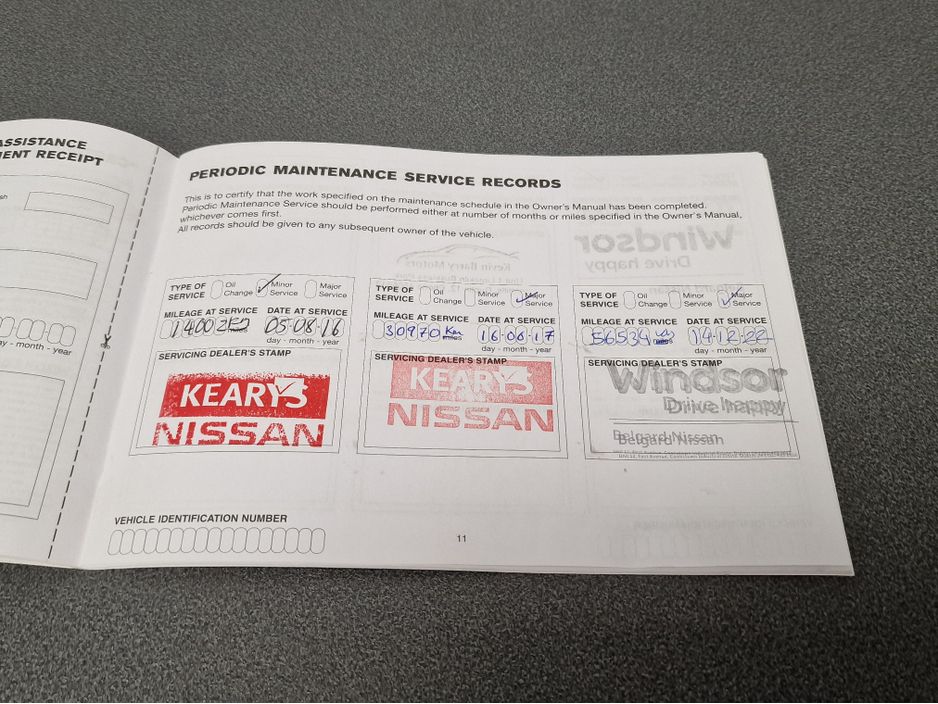 ASSISTANCE
ENT RECEIPT
sh
ay - month - year
PERIODIC MAINTENANCE SERVICE RECORDS
This is to certify that the work specified on the maintenance schedule in the Owner's Manual has been completed.
Periodic Maintenance Service should be performed either at number of months or miles specified in the Owner's Manual,
whichever comes first.
All records should be given to any subsequent owner of the vehicle.
Windsor
Drive happy
Kevin Barry Motors
TYPE OF SERVICE Oil Change Minor Service Major Service
MILEAGE AT SERVICE DATE AT SERVICE
05-08-16
day - month - year
SERVICING DEALER'S STAMP
KEARYS
NISSAN
TYPE OF SERVICE Oil Change Minor Service Major Service
MILEAGE AT SERVICE DATE AT SERVICE
30970 Km miles 16-08-17
day - month - year
SERVICING DEALER'S STAMP
KEARYS
NISSAN
TYPE OF SERVICE Oil Change Minor Service Major Service
MILEAGE AT SERVICE DATE AT SERVICE
56539 miles 14-12-22
day - month - year
SERVICING DEALER'S STAMP
Windsor
Drive happy
Belgard Nissan
VEHICLE IDENTIFICATION NUMBER
11